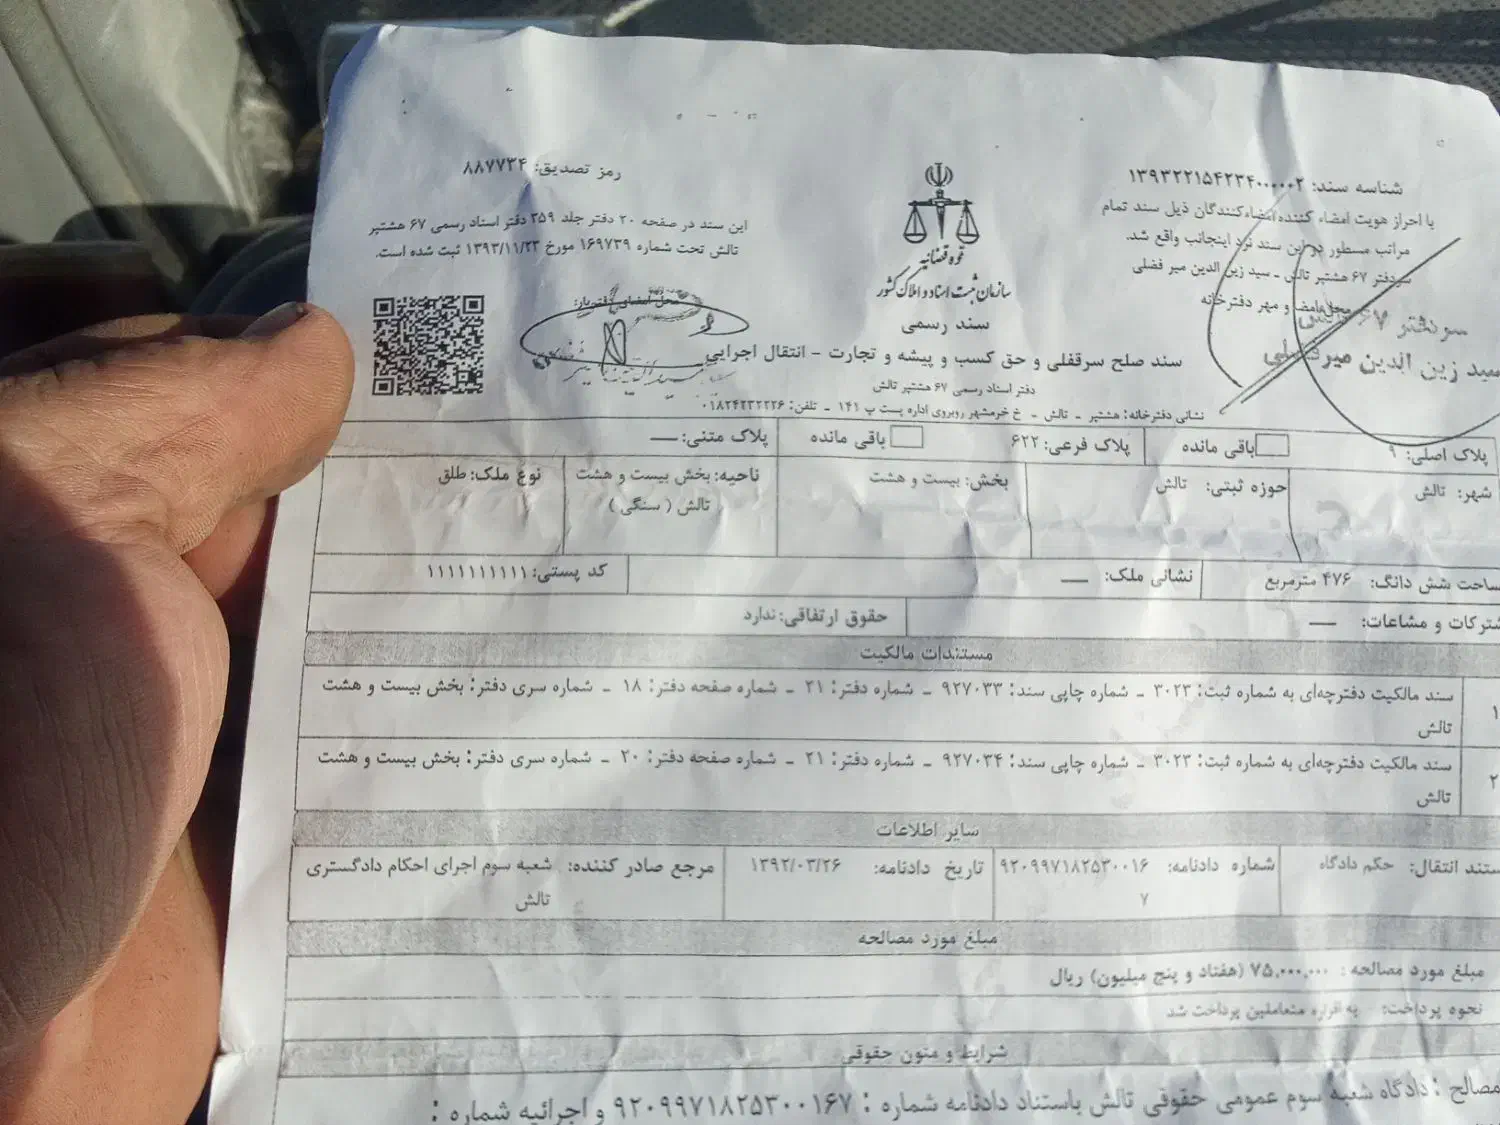 شناسه سند: ۱۳۹۳۲۲۱۵۴۲۳۴۰۰۰۰۰۲
با احراز هویت امضاء کننده/امضاءکنندگان ذیل سند تمام
مراتب مسطور در این سند نزد اینجانب واقع شد.
سردفتر ۶۷ هشتپر تالش - سید زین الدین میر فضلی
محل امضا و مهر دفترخانه
سردفتر ۶۷ تالش
سید زین الدین میرفضلی
قوه قضائیه
سازمان ثبت اسناد و املاک کشور
سند رسمی
سند صلح سرقفلی و حق کسب و پیشه و تجارت - انتقال اجرایی
دفتر اسناد رسمی ۶۷ هشتپر تالش
نشانی دفترخانه: هشتپر - تالش - خ خرمشهر روبروی اداره پست پ ۱۴۱ - تلفن: ۰۱۸۲۴۲۳۲۲۲۶
رمز تصدیق: ۸۸۷۷۳۴
این سند در صفحه ۲۰ دفتر جلد ۳۵۹ دفتر اسناد رسمی ۶۷ هشتپر
تالش تحت شماره ۱۶۹۷۳۹ مورخ ۱۳۹۳/۱۱/۲۳ ثبت شده است.
محل امضای دفتریار:
پلاک اصلی: ۹ باقی مانده پلاک فرعی: ۶۲۲ باقی مانده پلاک متنی: —
شهر: تالش حوزه ثبتی: تالش بخش: بیست و هشت ناحیه: بخش بیست و هشت نوع ملک: طلق
تالش ( سنگی )
ساحت شش دانگ: ۴۷۶ مترمربع نشانی ملک: — کد پستی: ۱۱۱۱۱۱۱۱۱۱
شترکات و مشاعات: — حقوق ارتفاقی: ندارد
مستندات مالکیت
۱ سند مالکیت دفترچه‌ای به شماره ثبت: ۳۰۲۳ - شماره چاپی سند: ۹۲۷۰۳۳ - شماره دفتر: ۲۱ - شماره صفحه دفتر: ۱۸ - شماره سری دفتر: بخش بیست و هشت
تالش
۲ سند مالکیت دفترچه‌ای به شماره ثبت: ۳۰۲۳ - شماره چاپی سند: ۹۲۷۰۳۴ - شماره دفتر: ۲۱ - شماره صفحه دفتر: ۲۰ - شماره سری دفتر: بخش بیست و هشت
تالش
سایر اطلاعات
ستند انتقال: حکم دادگاه شماره دادنامه: ۹۲۰۹۹۷۱۸۲۵۳۰۰۱۶ تاریخ دادنامه: ۱۳۹۲/۰۳/۲۶ مرجع صادر کننده: شعبه سوم اجرای احکام دادگستری
۷ تالش
مبلغ مورد مصالحه
مبلغ مورد مصالحه: ۷۵,۰۰۰,۰۰۰ (هفتاد و پنج میلیون) ریال
نحوه پرداخت: به اقرار متعاملین پرداخت شد
شرایط و متون حقوقی
مصالح : دادگاه شعبه سوم عمومی حقوقی تالش باستناد دادنامه شماره : ۹۲۰۹۹۷۱۸۲۵۳۰۰۱۶۷ و اجرائیه شماره :